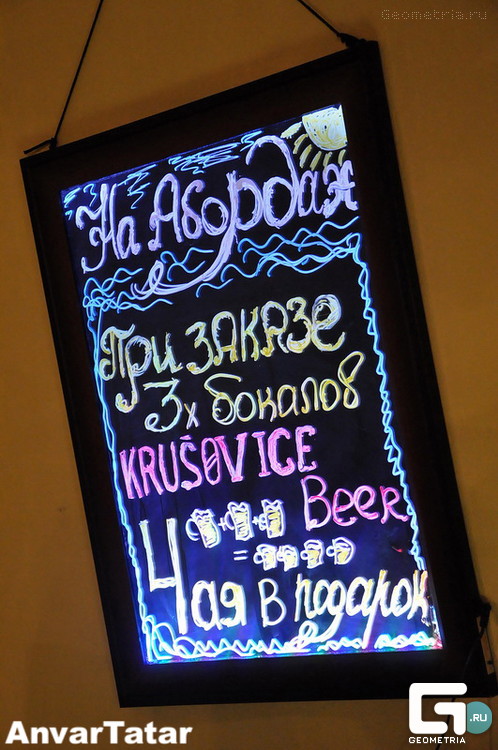 Geometria.ru
На Абордаж
При ЗАКАЗЕ
3х бокалов
KRUŠOVICE
Beer
4
+ +
=
Чая в подарок
AnvarTatar
G .RU
GEOMETRIA